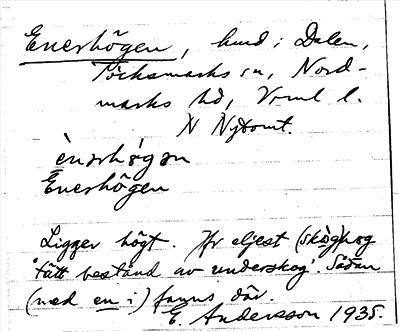 Enerhögen, hmd i Dalen,
Töcksmarks sn, Nord-
marks hd, Vrml l.
N Nytomt.
ènərhö́gən
Enerhögen
Ligger högt. Jfr eljest (skòg)hög
'tätt bestånd av underskog'. Sådan
(med en i) fanns där.
E. Andersson 1935.